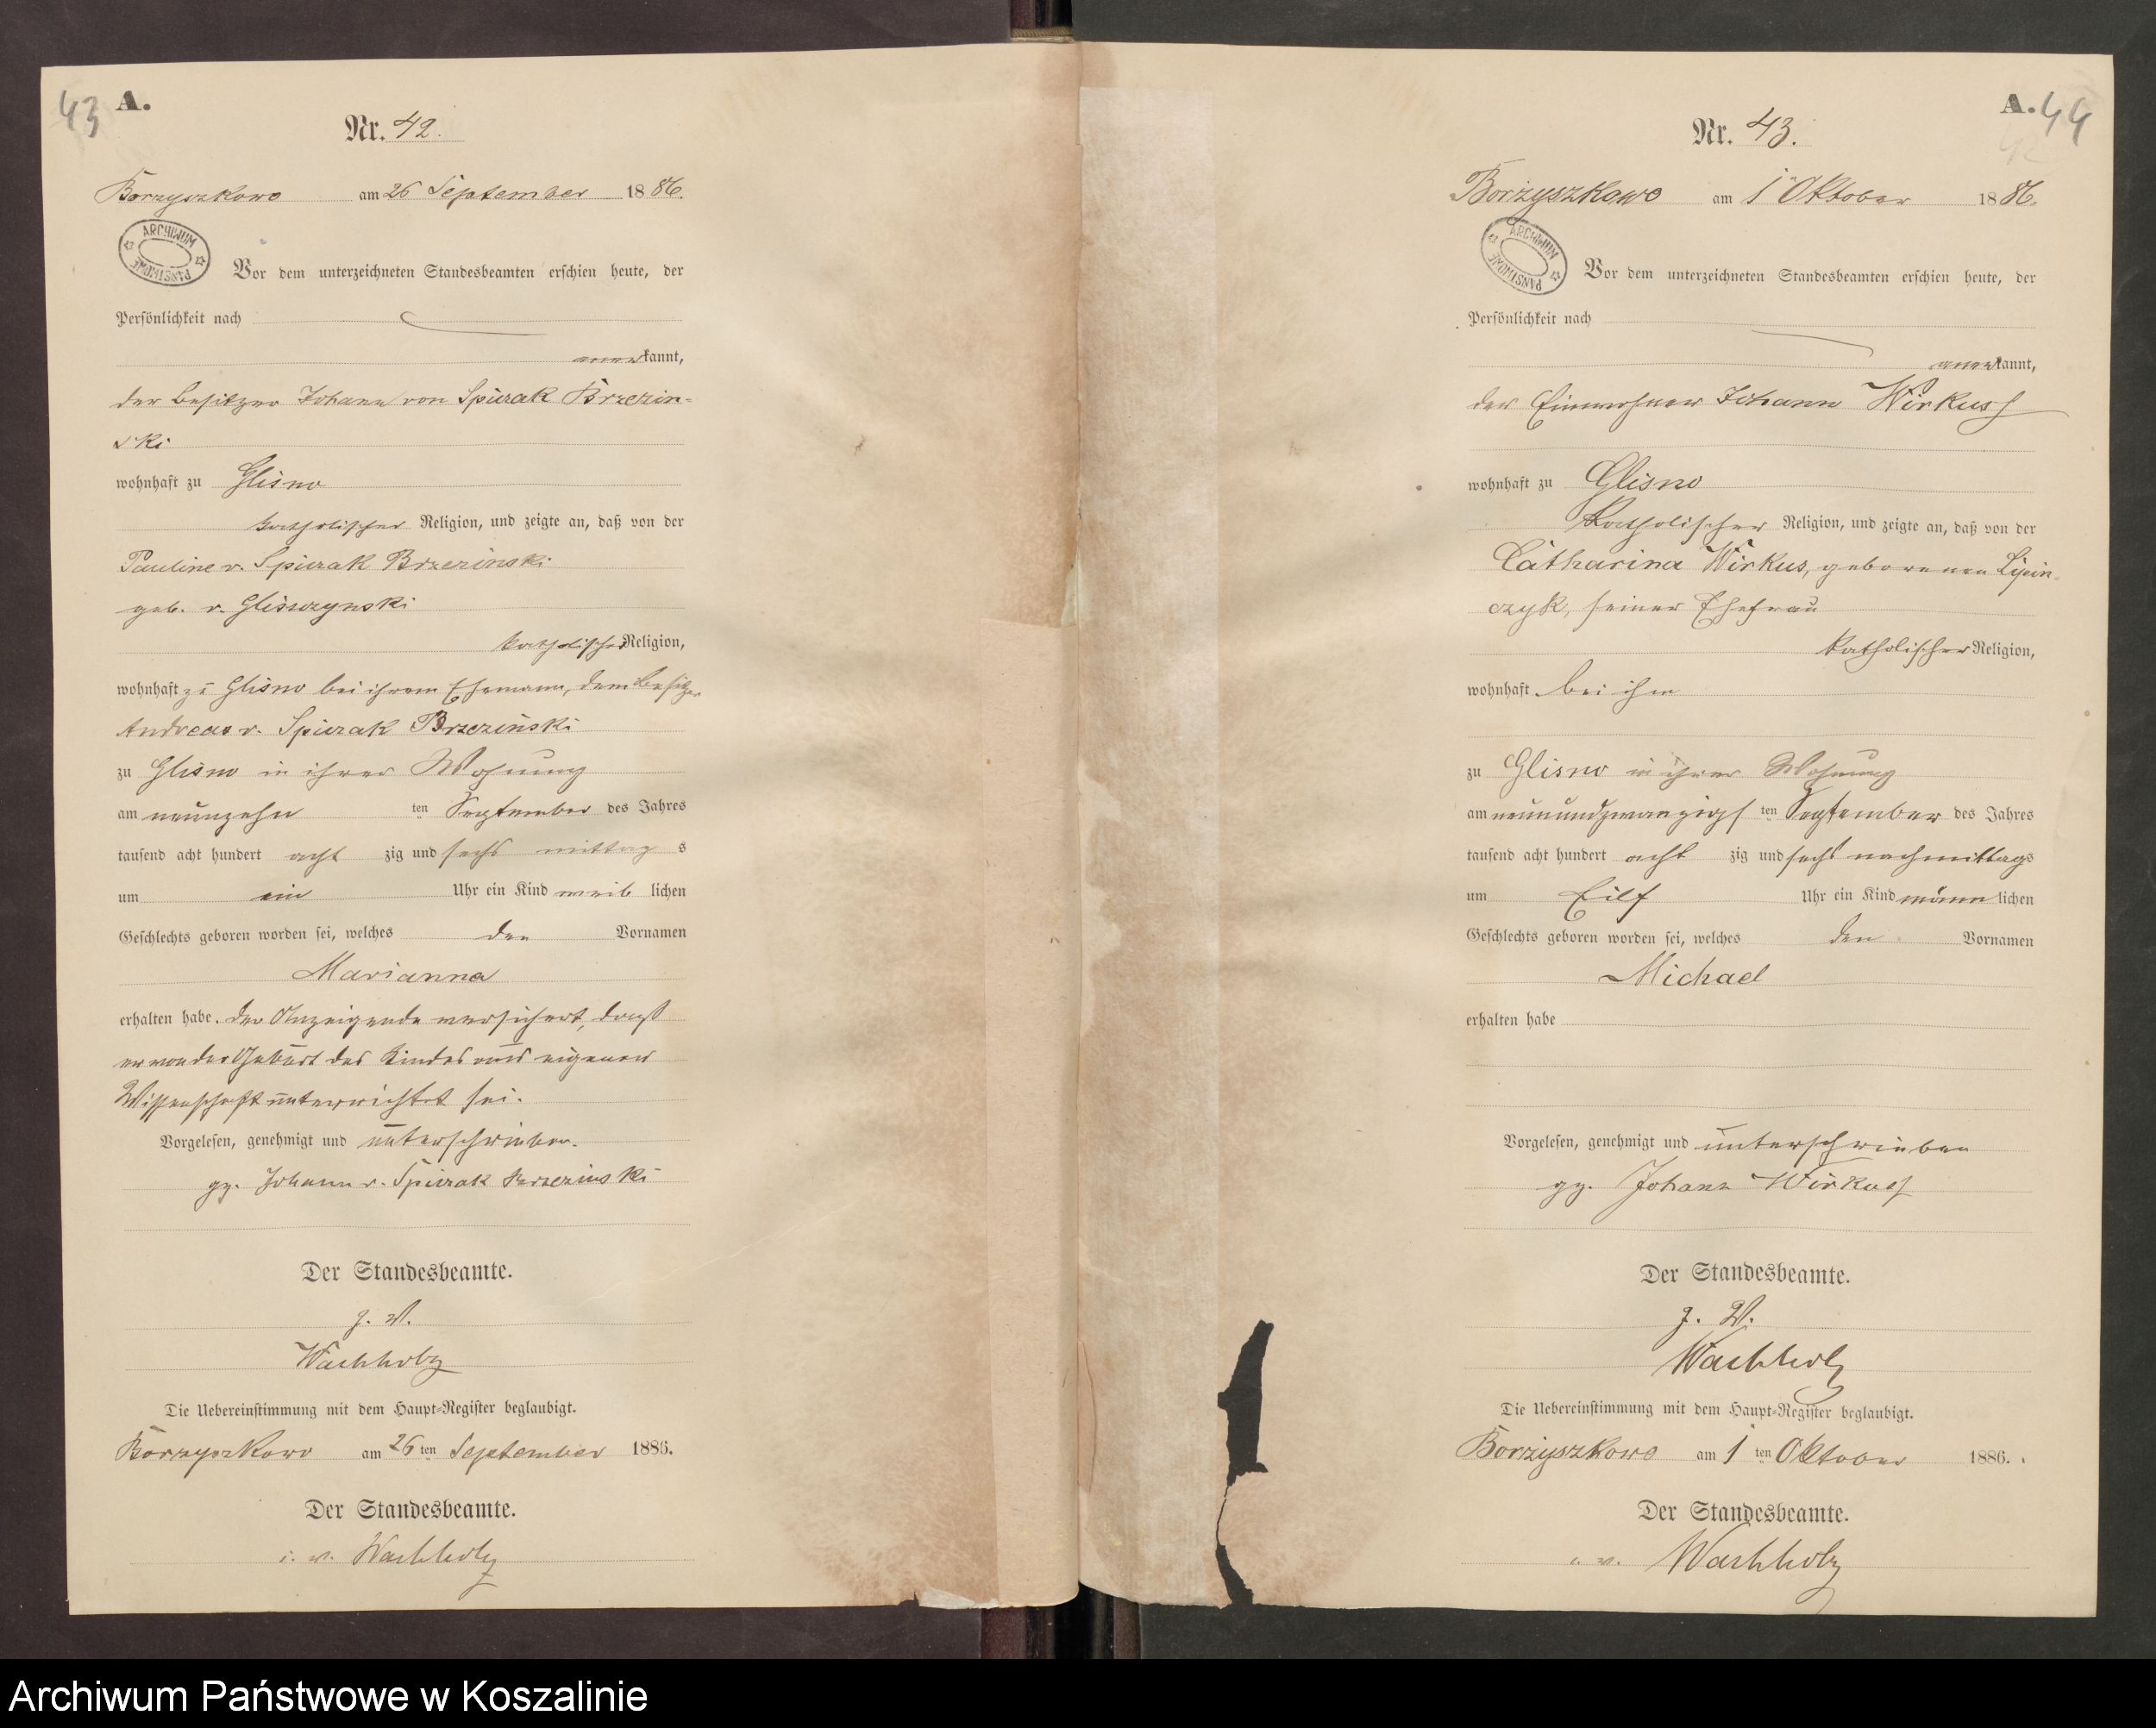 43
A.
Nr. 42.
Borzyszkowo am 26 September 1886.
ARCHIWUM PAŃSTWOWE
Vor dem unterzeichneten Standesbeamten erschien heute, der
Persönlichkeit nach
kannt,
der Besitzer Johann von Spiczak Brzezin-
ski
wohnhaft zu Glisno
katholischer Religion, und zeigte an, daß von der
Pauline v. Spiczak Brzezinski
geb. v. Glisczynski
katholischer Religion,
wohnhaft zu Glisno bei ihrem Ehemann, dem Besitzer
Andreas v. Spiczak Brzezinski
zu Glisno in ihrer Wohnung
am neunzehn ten September des Jahres
tausend acht hundert acht zig und sechs mittag s
um ein Uhr ein Kind weib lichen
Geschlechts geboren worden sei, welches den Vornamen
Marianna
erhalten habe. Der Anzeigende versichert, dass
er von der Geburt des Kindes aus eigener
Wissenschaft unterrichtet sei.
Vorgelesen, genehmigt und unterschrieben.
gz. Johann v. Spiczak Brzezinski
Der Standesbeamte.
J. V.
Wachholz
Die Uebereinstimmung mit dem Haupt-Register beglaubigt.
Borzyszkowo am 26 ten September 1886.
Der Standesbeamte.
i. v. Wachholz
A. 44
Nr. 43.
Borzyszkowo am 1 Oktober 1886.
ARCHIWUM PAŃSTWOWE
Vor dem unterzeichneten Standesbeamten erschien heute, der
Persönlichkeit nach
kannt,
der Einwohner Johann Wirkuss
wohnhaft zu Glisno
katholischer Religion, und zeigte an, daß von der
Catharina Wirkus, geborenen Lipin-
czyk, seiner Ehefrau
katholischer Religion,
wohnhaft bei ihm
zu Glisno in ihrer Wohnung
am neunundzwanzigs ten September des Jahres
tausend acht hundert acht zig und sechs nachmittags
um Eilf Uhr ein Kind männ lichen
Geschlechts geboren worden sei, welches den Vornamen
Michael
erhalten habe
Vorgelesen, genehmigt und unterschrieben
gz. Johann Wirkuss
Der Standesbeamte.
J. V.
Wachholz
Die Uebereinstimmung mit dem Haupt-Register beglaubigt.
Borzyszkowo am 1 ten Oktober 1886.
Der Standesbeamte.
i. v. Wachholz
Archiwum Państwowe w Koszalinie